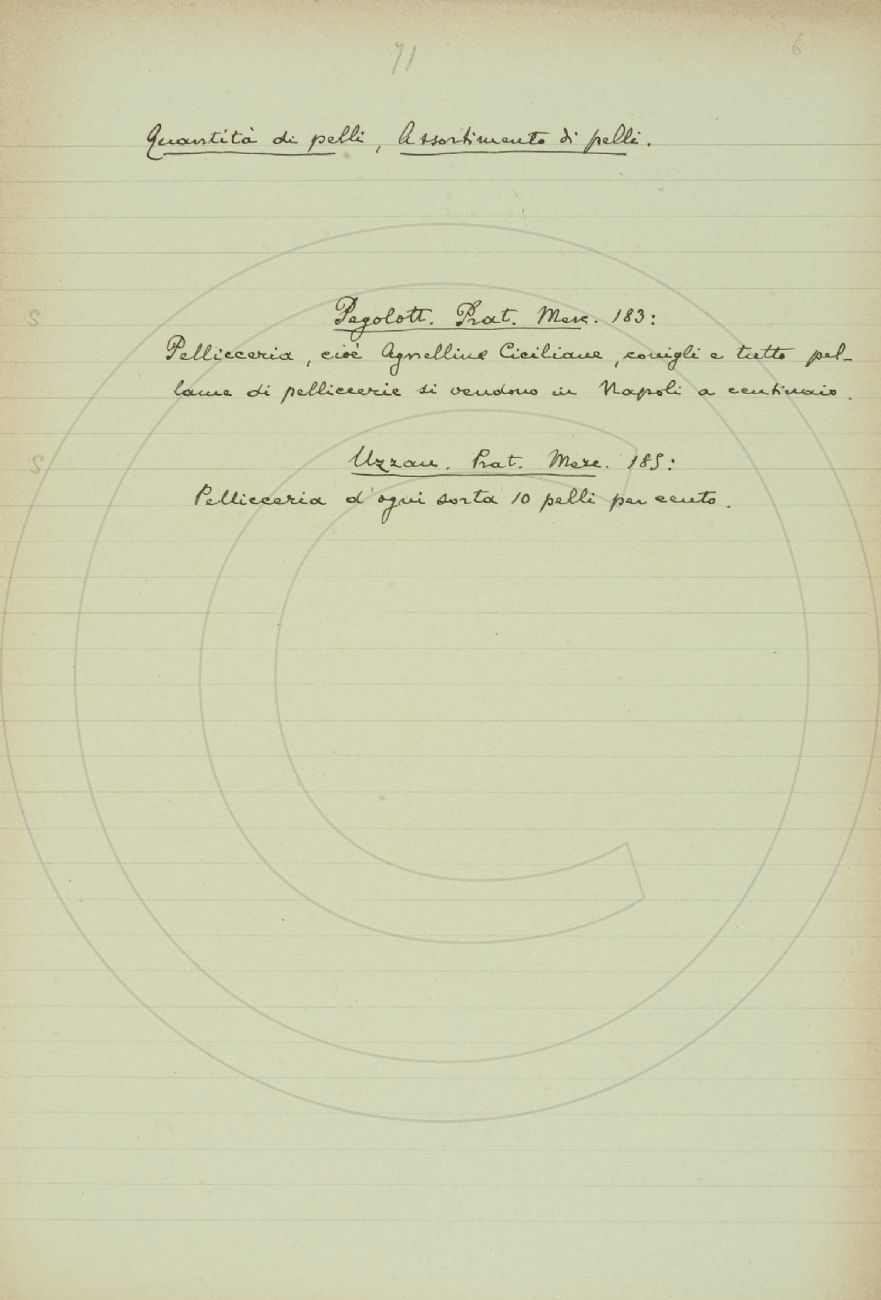 71 6
Quantità di pelli, Assortimento di pelli.
Pegolott. Prat. Merc. 183:
Pellicceria, cioè Agnelline Ciciliane, conigli e tutto pel-
lame di pelliccerie si vendono in Napoli a centinaio.
Uzzan. Prat. Merc. 185:
Pellicceria d'ogni sorta 10 pelli per cento.